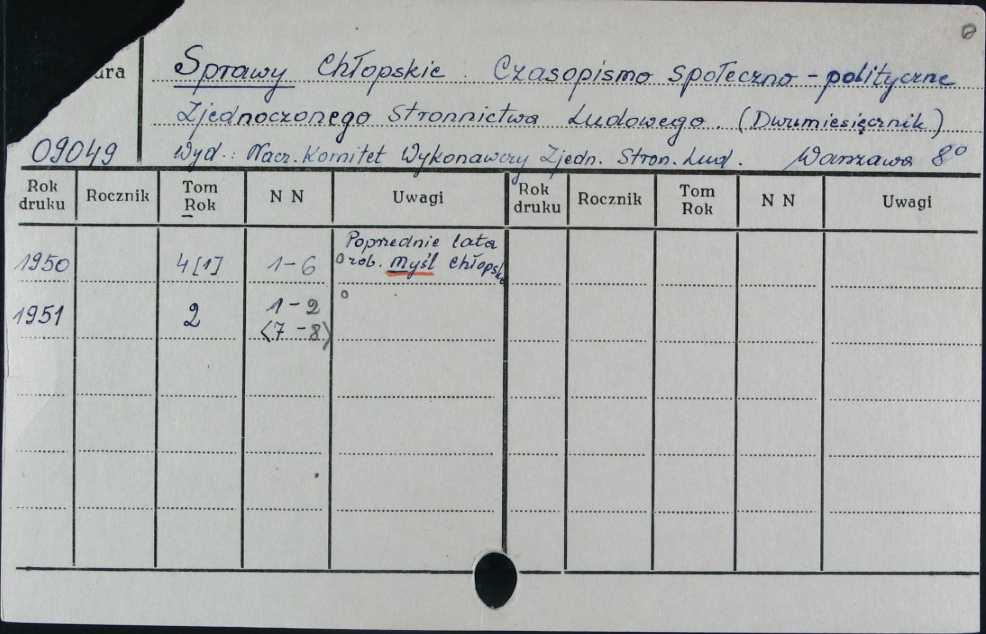 ura
Sprawy Chłopskie. Czasopismo społeczno-polityczne
Zjednoczonego Stronnictwa Ludowego. (Dwumiesięcznik)
09049 Wyd.: Nacz. Komitet Wykonawczy Zjedn. Stron. Lud. Warszawa 8°
Rok druku Rocznik Tom Rok N N Uwagi Rok druku Rocznik Tom Rok N N Uwagi
Poprzednie lata
1950 4[1] 1-6 ob. Myśl Chłopska
1951 2 1-2
<7-8>